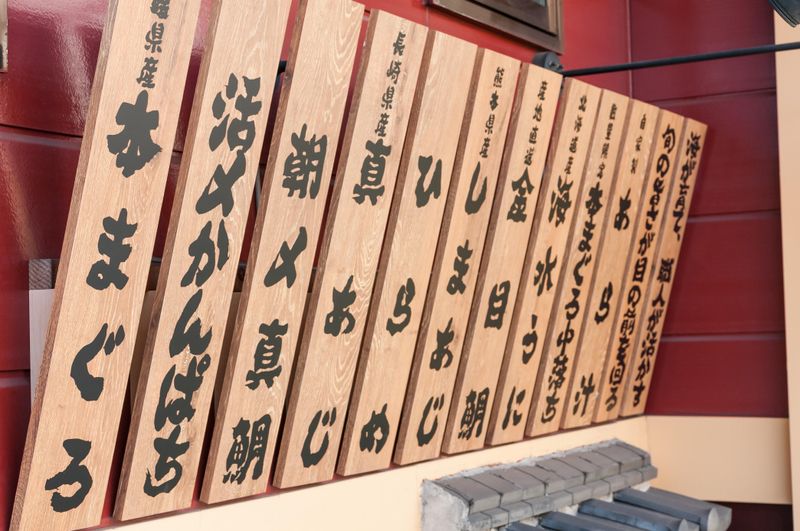 海が育て、職人が活かす
旬の旨さが目の前を回る
自家製 あら汁
数量限定 本まぐろ中落ち
北海道産 海水うに
産地直送 金目鯛
熊本県産 しまあじ
ひらめ
長崎県産 真あじ
朝〆真鯛
活〆かんぱち
県産 本まぐろ